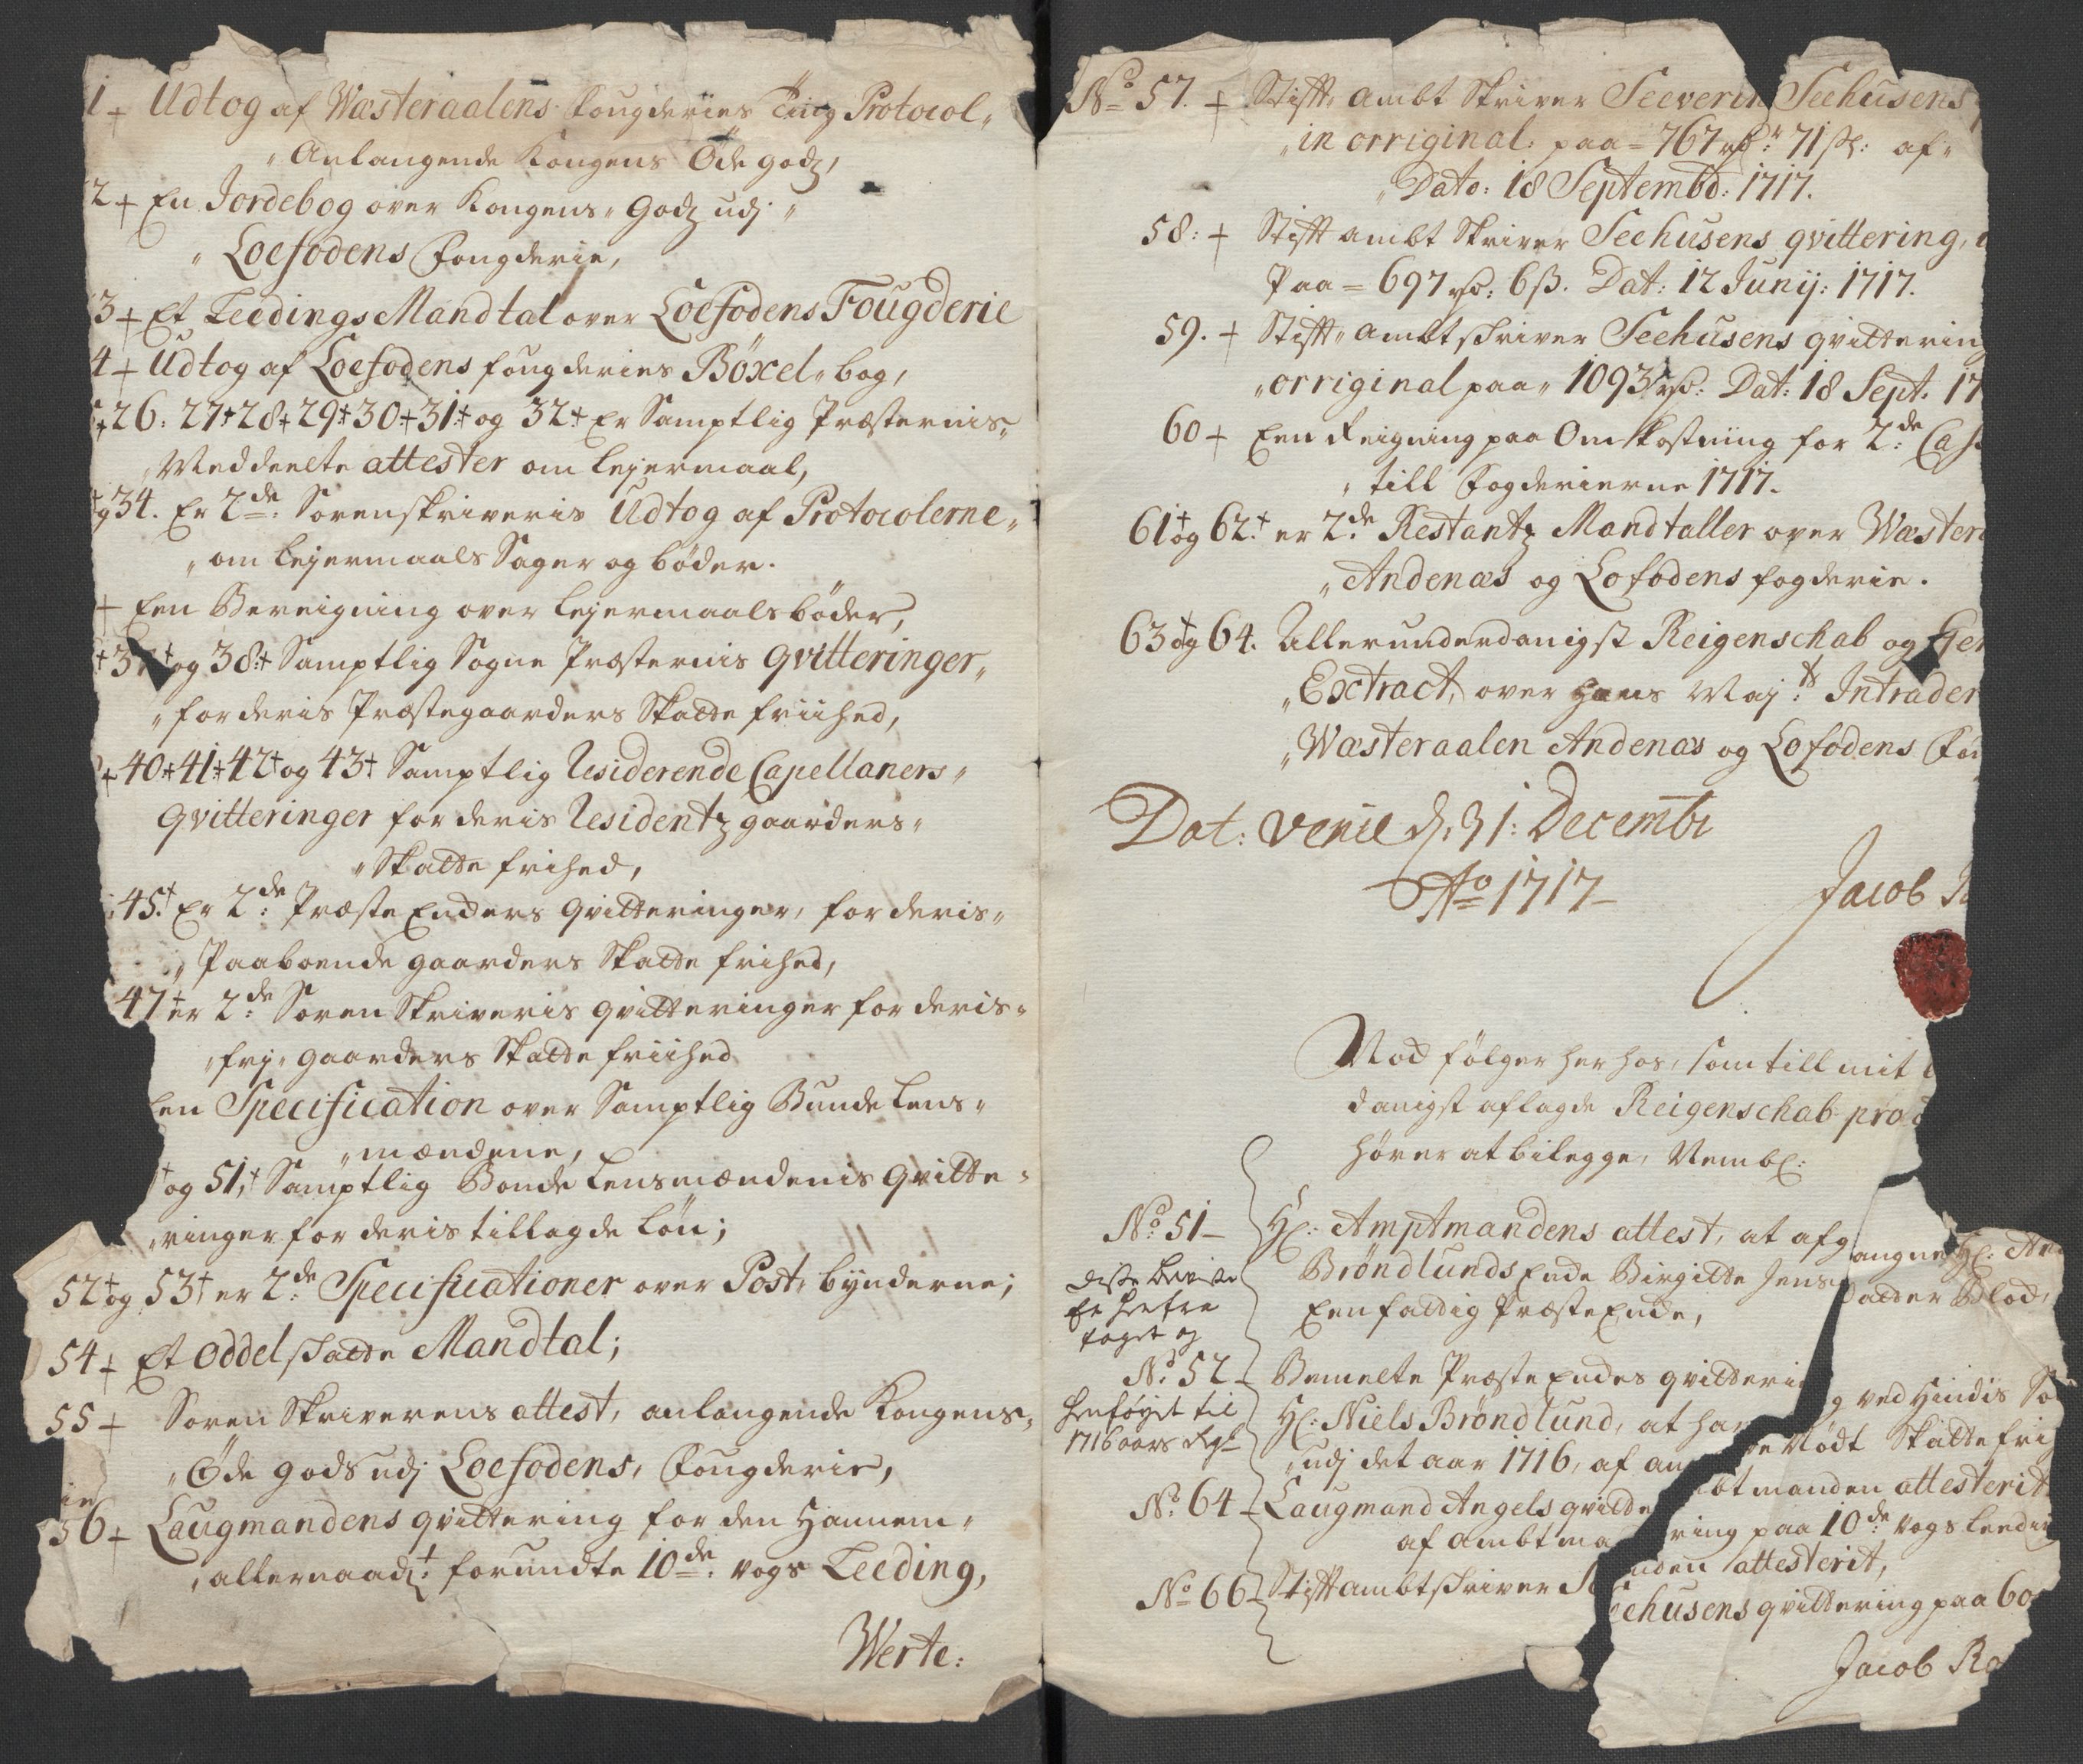 1 + Udtog af Wæsteraalens fougderies Ting Protocol„
„Anlangende Kongens Öde godz,
2 + En Jordebog over Kongens„ Godz udj„
„Loefodens Fougderie,
3 + Et Leedings Mandtal over Loefodens Fougderie
4 + Udtog af Loefodens fougderies Böxel„bog,
+ 26: 27 + 28 + 29 + 30 + 31 + og 32 + Er Samptlig Præsternis„
„Meddeelte attester om lejermaal,
g 34. Er 2de: Sorenskriveris Udtog af Protocolerne„
„om Lejermaals Sager og böder.
+ Een Bereigning over Lejermaals böder,
+ 37 + og 38 + Samptlig Sogne Præsternis qvitteringer„
„for deris Præstegaarders Skatte friihed,
+ 40 + 41 + 42 + og 43 + Samptlig Residerende Capellaners„
Qvitteringer for deris Residentz gaarders„
„Skatte frihed,
: 45 + Er 2de: Præste Enckers Qvitteringer, for deris„
„Paaboende gaarders Skatte frihed,
47 + er 2de: Soren Skriveris qvitteringer for deris„
„frj„ gaarders Skatte friihed
Een Specification over Samptlig Bunde Lens„
„mændene,
+ og 51, + Samptlig Bonde Lensmændenis qvitte„
„ringer for deris tillagde Lön;
52 + og 53 + er 2de: Specificationer over Post„bÿnderne;
54 + Et Oddel skatte Mandtal;
55 + Soren Skriverens attest, anlangende Kongens„
„Öde gods udj Loefodens, Fougderie,
56 + Laugmandens qvittering for den Hannem„
„allernaadt: forundte 10de: vogs Leeding,
Werte:
No 57. + Stift„ambt Skriver Seeverin Seehusens
„in orriginal: paa = 767 rdr: 71 sk: af„
„Dato: 18 Septembd: 1717.
58: + Stift ambt Skriver Seehusens qvittering,
Paa = 697 rd: 6 ß. Dat: 12 Junij: 1717.
59. + Stift„ambtskriver Seehusens qvittering
„orriginal paa„ 1093 rd: Dat: 18 Sept. 17
60 + Een Reigning paa Omkostning for 2de: Cass
„till Fogderierne 1717.
61 + og 62 + er 2de Restantz Mandtaller over Wæster
„Andenæs og Lofodens fogderie.
63 + og 64. Allerunderdanigst Reigenschab og Gen
„Extract, over Hans Maj:ts Intrader
„Wæsteraalen Andenæs og Lofodens Fou
Dat: Verie d. 31: Decembr
Ao 1717
Jacob R
Mod fölger her hos, som till mit
danigst aflagde Reigenschab pro
hörer at bilegge, Nembl:
No 51 – Hr: Amptmandens attest, at afgangne Hr: An
Bröndlunds Encke Birgitte Jens datter Blod,
Een fattig Præste Encke,
Disse beviste
Er herfra
taget og
No. 52 – Bemelte Præste Enckes qvittering ved Hindis Sö
Hr: Niels Bröndlund, at have Nödt Skatte fri
„udj det aar 1716, af ambtmanden attesterit
henföyet til
1716 aars Regsk
No. 64 – Laugmand Angels qvittering paa 10de: vogs Leeding
af ambtmanden attesterit,
No 66 – Stiftambtskriver Seehusens qvittering paa 60
Jacob Ra